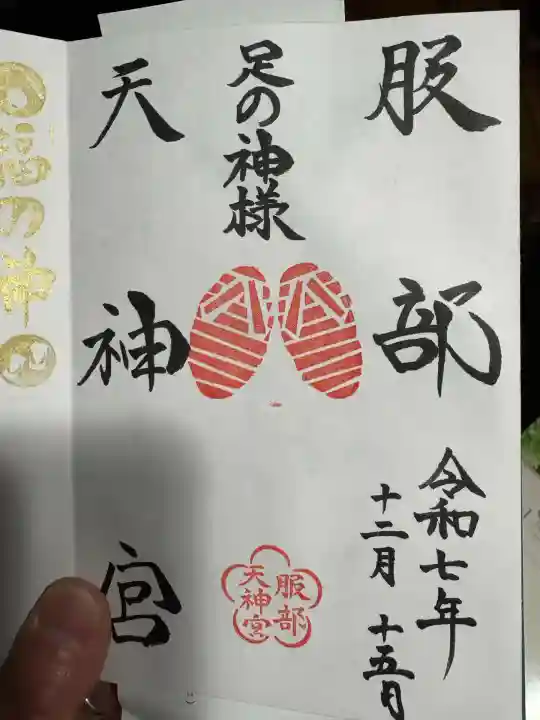 服部
令和七年
十二月 十五日
足の神様
服部
天神宮
天神宮
福の神